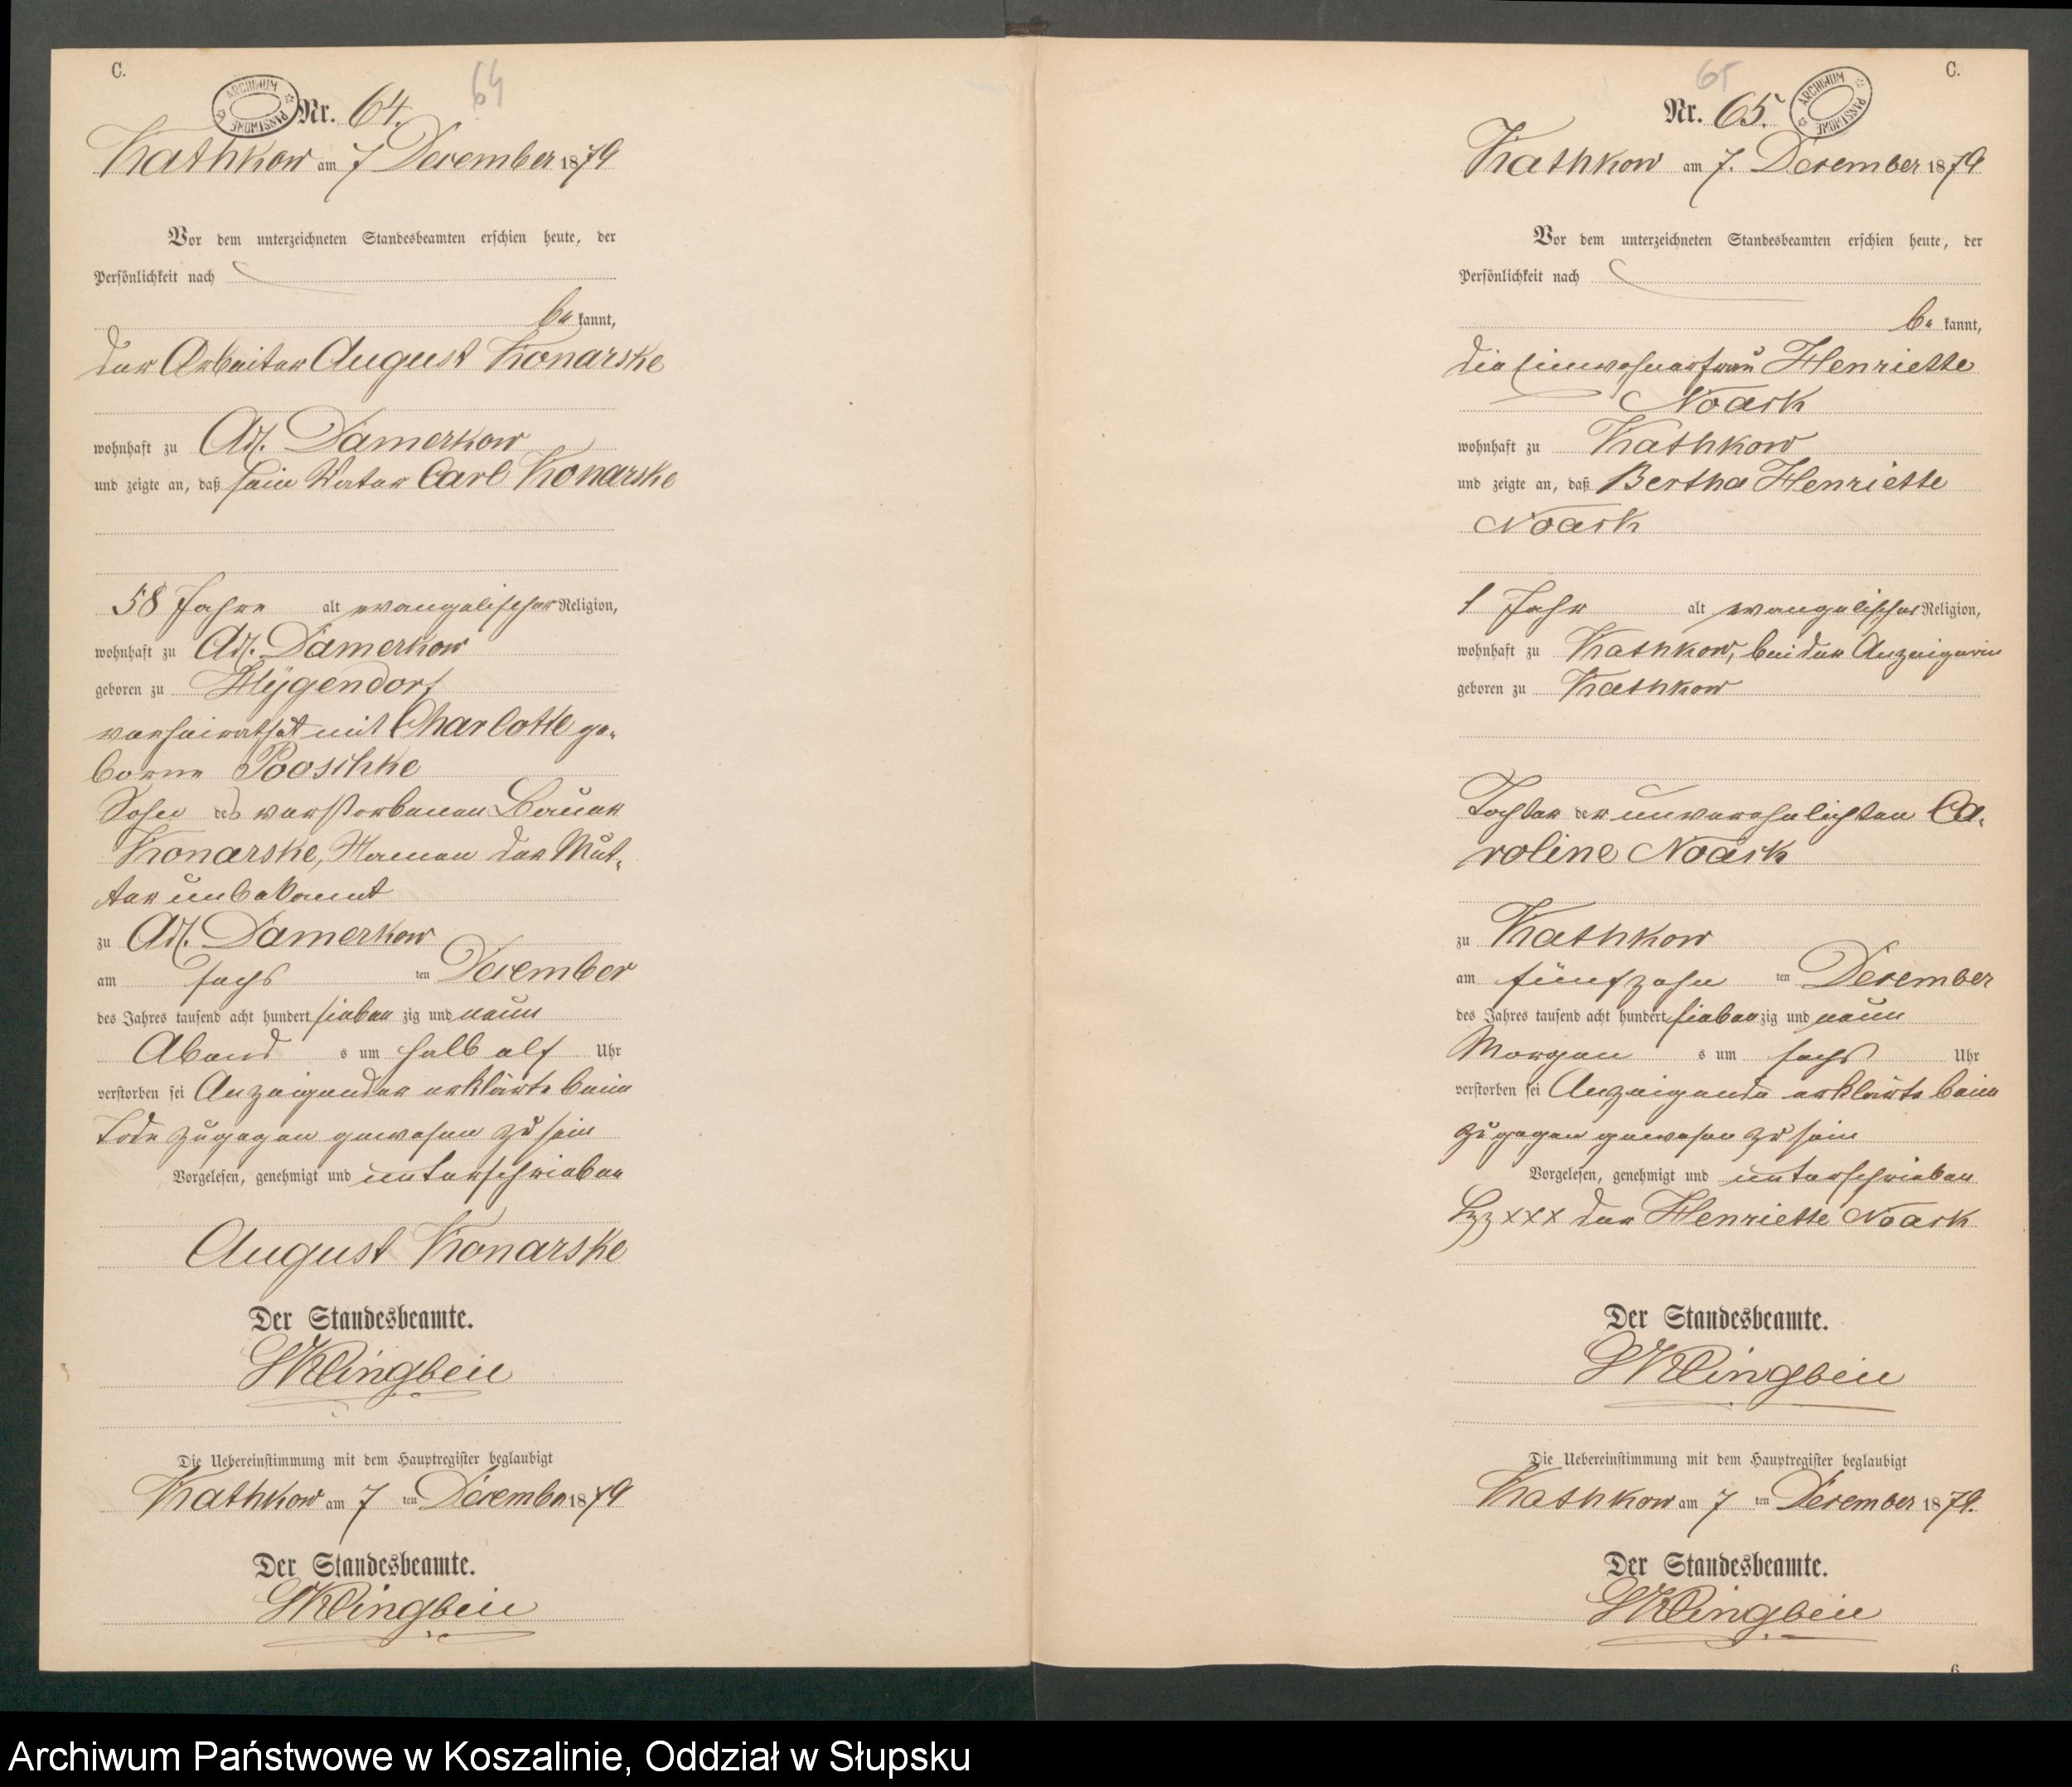 C.
64
ARCHIWUM PAŃSTWOWE
Nr. 64.
Kathkow am 7 December 1879
Vor dem unterzeichneten Standesbeamten erschien heute, der
Persönlichkeit nach
be kannt,
der Arbeiter August Konarske
wohnhaft zu Adl. Damerkow
und zeigte an, daß sein Vater Carl Konarske
58 Jahre alt evangelischer Religion,
wohnhaft zu Adl. Damerkow
geboren zu Hÿgendorf
verheirathet mit Charlotte ge-
borne Pooschke
Sohn des verstorbenen Bauer
Konarske, Namen der Mut-
ter unbekannt
zu Adl. Damerkow
am sechs ten December
des Jahres tausend acht hundert sieben zig und neun
Abend s um halb elf Uhr
verstorben sei Anzeigender erklärte beim
Tode zugegen gewesen zu sein
Vorgelesen, genehmigt und unterschrieben
August Konarske
Der Standesbeamte.
Klingbeil
Die Uebereinstimmung mit dem Hauptregister beglaubigt
Kathkow am 7 ten December 1879
Der Standesbeamte.
Klingbeil
C.
65
ARCHIWUM PAŃSTWOWE
Nr. 65.
Kathkow am 7. December 1879
Vor dem unterzeichneten Standesbeamten erschien heute, der
Persönlichkeit nach
be kannt,
die Einwohnerfrau Henriette
Noask
wohnhaft zu Kathkow
und zeigte an, daß Bertha Henriette
Noask
1 Jahr alt evangelischer Religion,
wohnhaft zu Kathkow, bei der Anzeigerin
geboren zu Kathkow
Tochter der unverehelichten Ca-
roline Noask
zu Kathkow
am fünfzehn ten December
des Jahres tausend acht hundert sieben zig und neun
Morgen s um sechs Uhr
verstorben sei Anzeigende erklärte beim
zugegen gewesen zu sein
Vorgelesen, genehmigt und unterschrieben
xxx der Henriette Noask
Der Standesbeamte.
Klingbeil
Die Uebereinstimmung mit dem Hauptregister beglaubigt
Kathkow am 7 ten December 1879.
Der Standesbeamte.
Klingbeil
Archiwum Państwowe w Koszalinie, Oddział w Słupsku